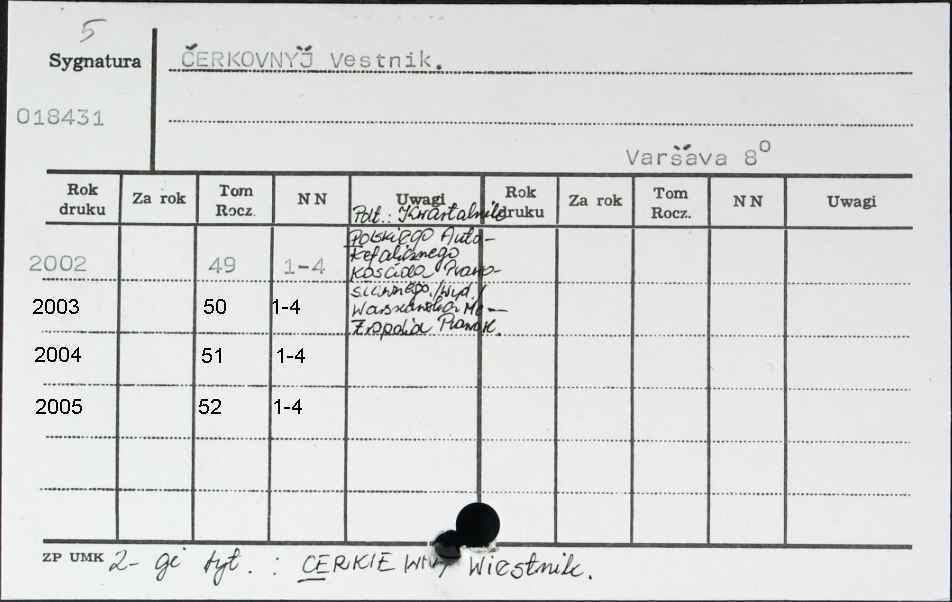 5
Sygnatura
ČERKOVNYJ̌ Vestnik.
018431
Varšava 8°
Rok druku Za rok Tom Rocz. NN Uwagi Rok druku Za rok Tom Rocz. NN Uwagi
Pdt.: Kwartalnik
Polskiego Auto-
kefalicznego
2002 49 1-4 Kościoła Prawo-
sławnego./Wyd./
2003 50 1-4 Warszawska Me-
tropolia Prawosł.
2004 51 1-4
2005 52 1-4
ZP UMK 2-gi tyt. : CERKIEWNY Wiestnik.